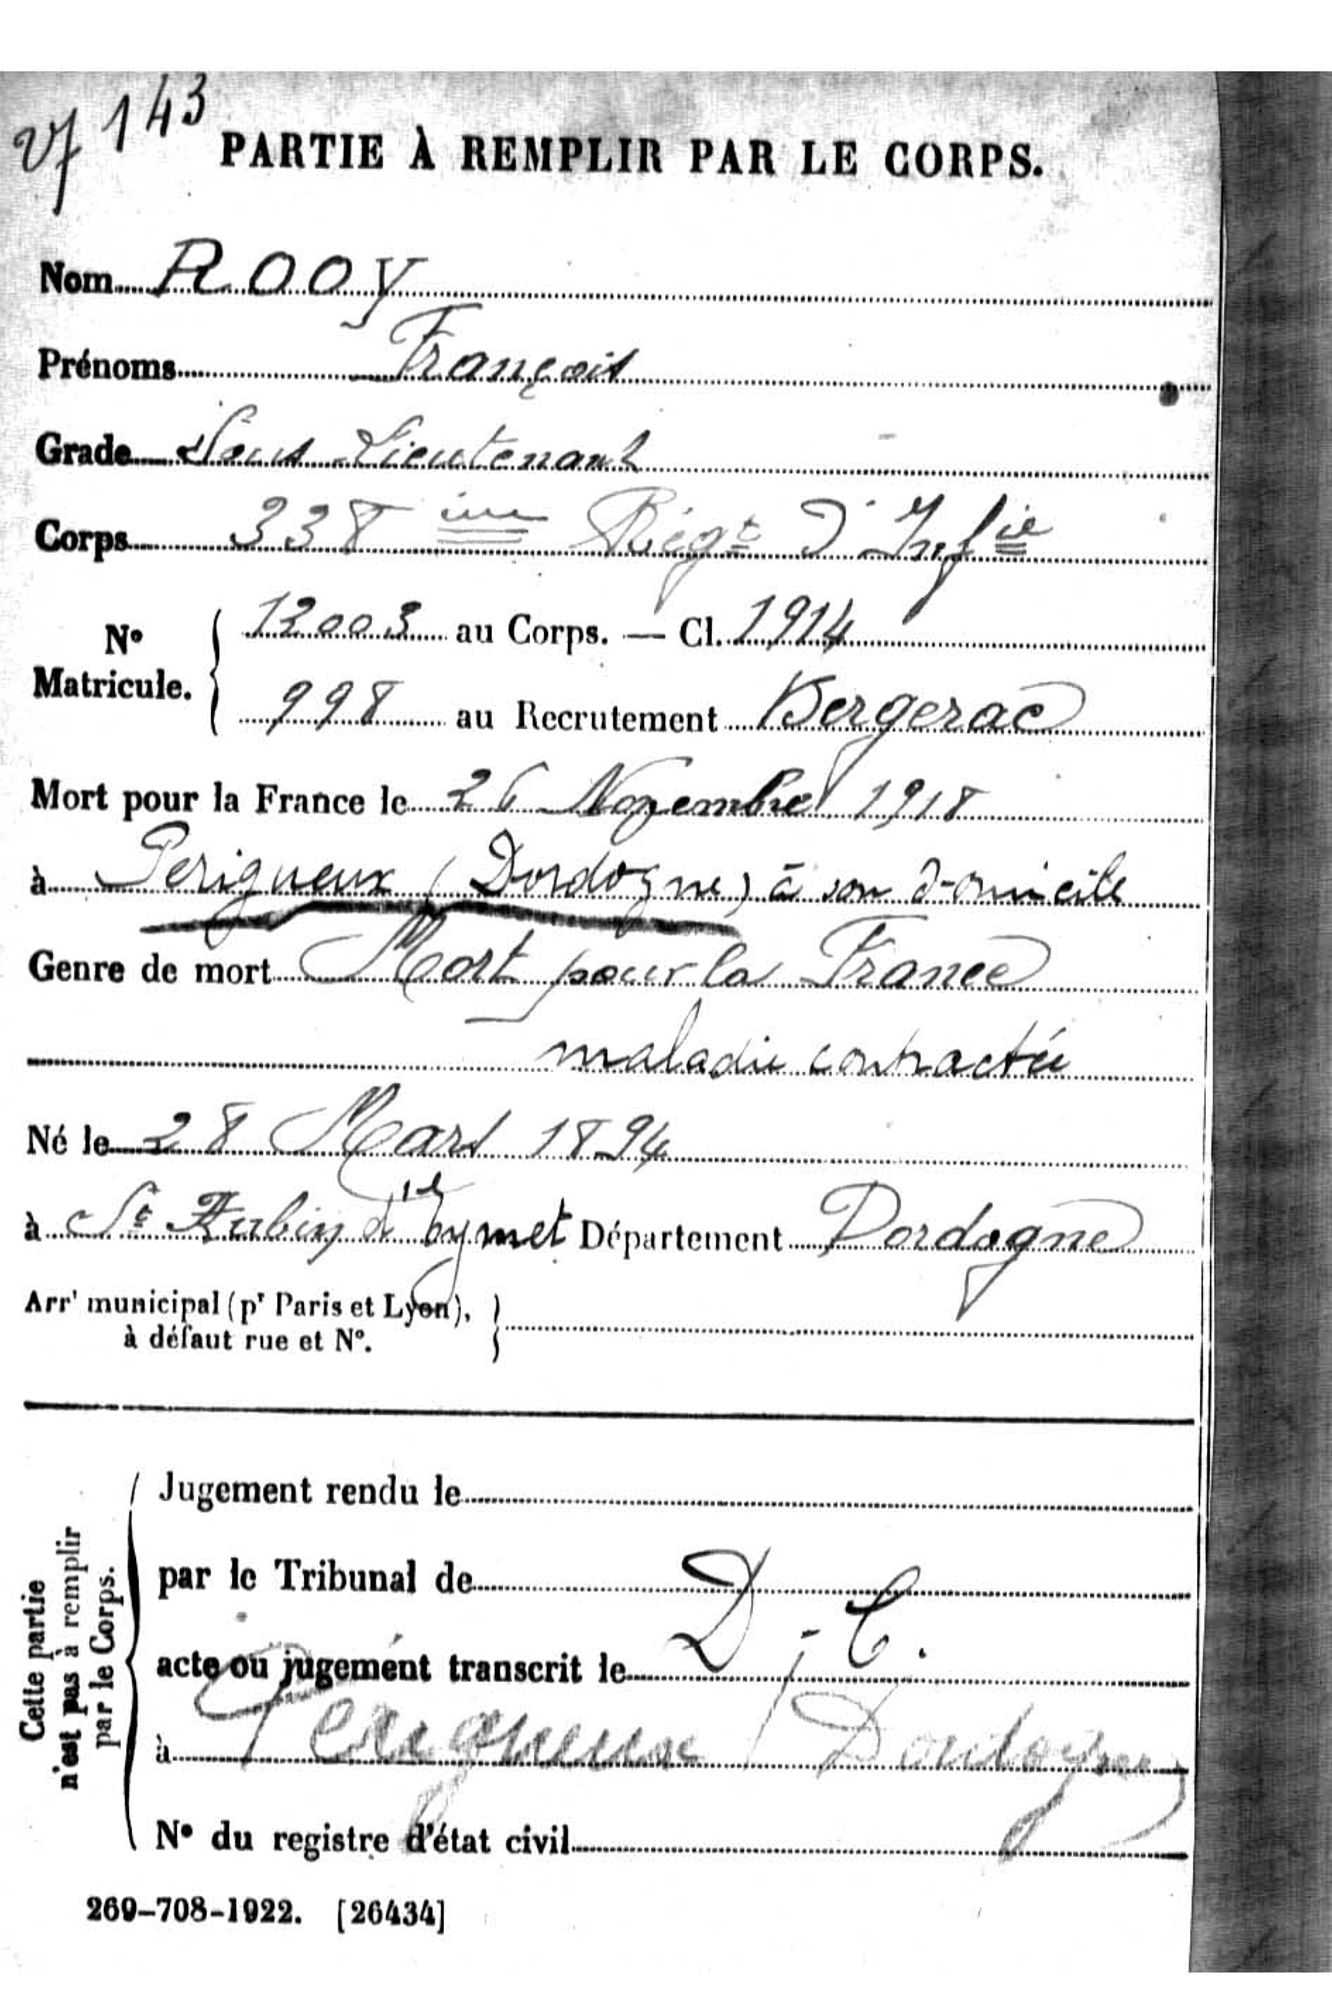 Vf 143
PARTIE À REMPLIR PAR LE CORPS.
Nom ROOY
Prénoms François
Grade Sous Lieutenant
Corps 338 ème Régt d'Infie
No Matricule. 12003 au Corps. — Cl. 1914
998 au Recrutement Bergerac
Mort pour la France le 26 Novembre 1918
à Perigueux (Dordogne) à son domicile
Genre de mort Mort pour la France
maladie contractée
Né le 28 Mars 1894
à St Aubin d'Eymet Département Dordogne
Arrt municipal (pr Paris et Lyon),
à défaut rue et No.
Cette partie n'est pas à remplir par le Corps.
Jugement rendu le
par le Tribunal de
D. C.
acte ou jugement transcrit le
à Perigueux Dordogne
No du registre d'état civil
269-708-1922. [26434]